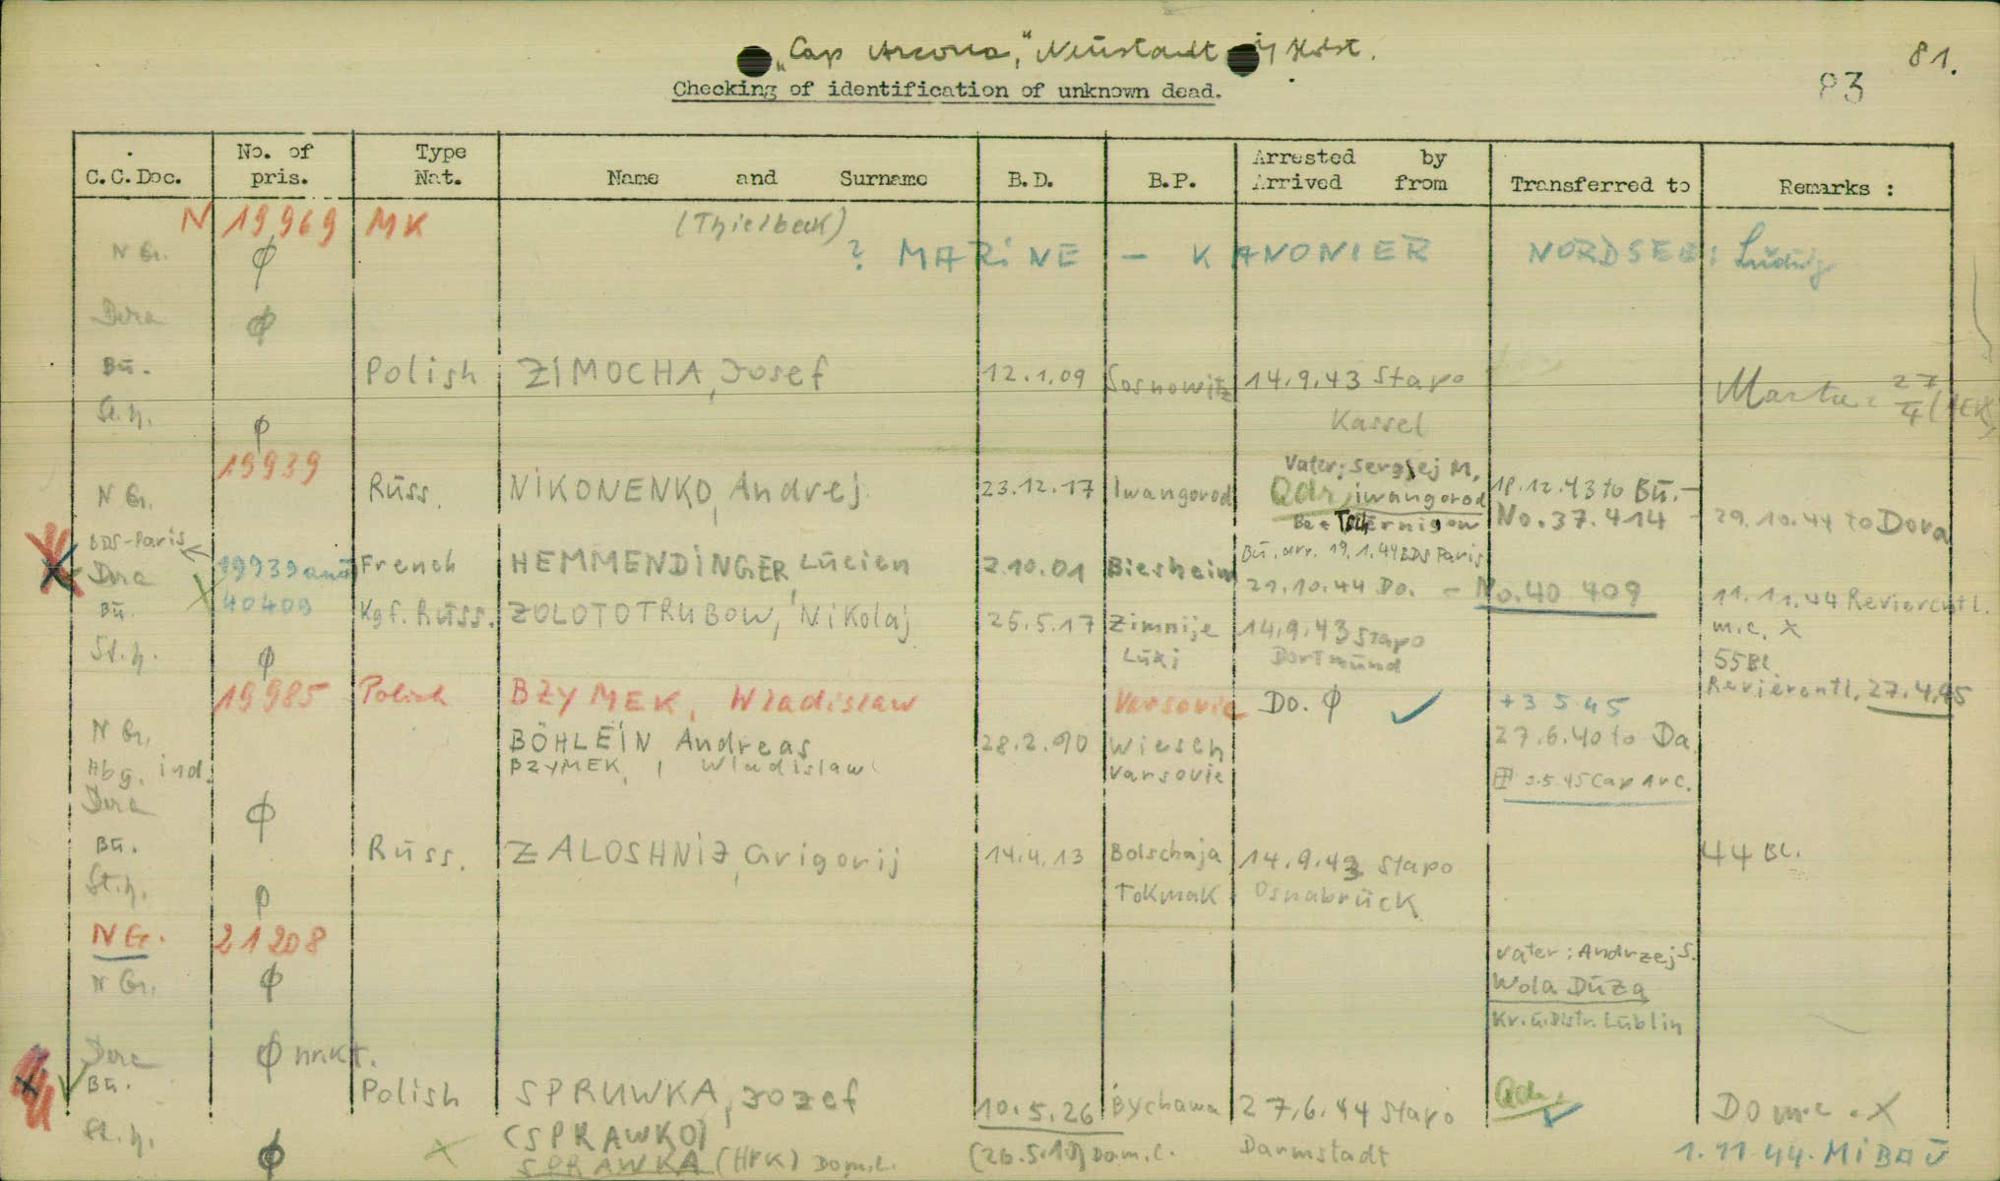 "Cap Arcona," Neustadt i/ Holst.
81.
83
Checking of identification of unknown dead.
C.C.Doc. No. of pris. Type Nat. Name and Surname B.D. B.P. Arrested by Arrived from Transferred to Remarks :
N 19969 MK (Thielbeck)
N Gr. ϕ ? MARINE - KANONIER NORDSEE: Ludwig
Dora ϕ
Bū. Polish ZIMOCHA, Josef 12.1.09 Sosnowitz 14.9.43 Stapo
Kassel
27/4
St.h. ϕ
19939
N Gr. Rūss. NIKONENKO, Andrej 23.12.17 Iwangorod
Vater: Sergjej M,
Qdr, iwangorod
Bez Tschernigow
18.12.43 to Bū. -
No. 37.414 - 29.10.44 to Dora
BDS-Paris
Dora 19939 and French HEMMENDINGER, Lūcien 2.10.01 Biesheim
Bū. arr. 19.1.44 BDS Paris
29.10.44 Do. - No. 40 409 11.11.44 Revierentl.
m.c. X
Bū. 40409 Kgf. Rūss. ZOLOTOTRUBOW, Nikolaj 26.5.17 Zimnije
Lūki
14.9.43 Stapo
Dortmūnd
55 Bl.
Revierentl. 27.4.45
St.h. ϕ
19985 Polish BZYMEK, Wladislaw Varsovie Do. ϕ ✓ +3 5.45
N Gr. BÖHLEIN Andreas 28.2.90 Wiesch 27.6.40 to Da.
Abg. ind. BZYMEK, Wladislaw Varsovie 3.5.45 Cap Arc.
Dora ϕ
Bū. Rūss. ZALOSHNIJ, Grigorij 14.4.13 Bolschaja
Tokmak
14.9.43 Stapo
Osnabrūck
44 Bl.
St.h. ϕ
N Gr. 21208
N Gr. ϕ
Vater: Andrzej S.
Wola Dūża
Kr. ū. Distr. Lūblin
Dora ϕ nr.kt.
Bū. Polish SPRUWKA, Jozef 10.5.26 Bychawa 27.6.44 Stapo Qdr. ✓ Do m.c. X
(SPRAWKO)
St.h. ϕ SPRAWKA (HPK) Do m.c. (26.5.10) Do m.c. Darmstadt 1.11.44. MIBAU